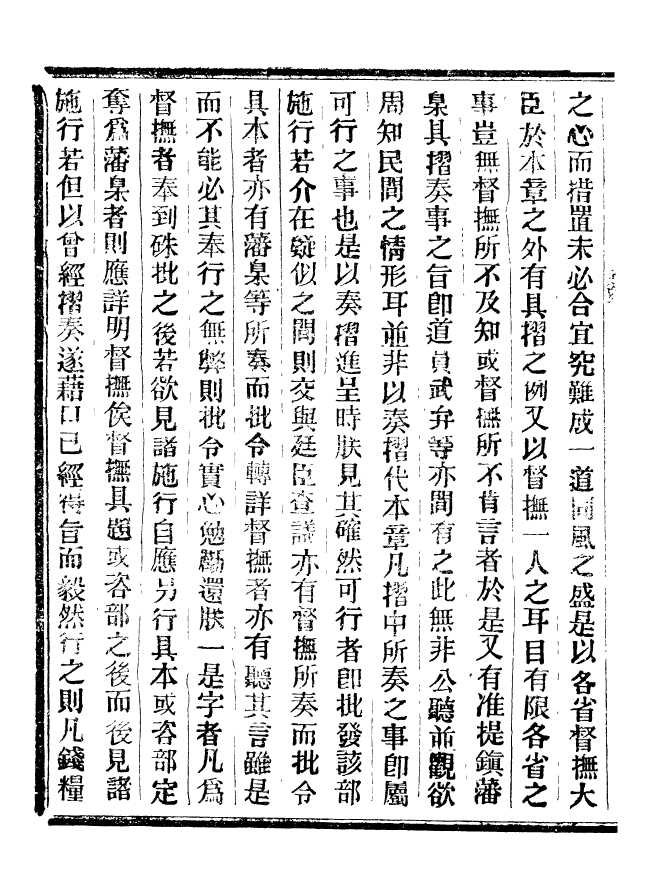 之心而措置未必合宜究難成一道同風之盛是以各省督撫大
臣於本章之外有具摺之例又以督撫一人之耳目有限各省之
事豈無督撫所不及知或督撫所不肯言者於是又有准提鎮藩
臬具摺奏事之旨卽道員武弁等亦間有之此無非公聽並觀欲
周知民間之情形耳並非以奏摺代本章凡摺中所奏之事卽屬
可行之事也是以奏摺進呈時朕見其確然可行者卽批發該部
施行若介在疑似之間則交與廷臣查議亦有督撫所奏而批令
具本者亦有藩臬等所奏而批令轉詳督撫者亦有聽其言雖是
而不能必其奉行之無弊則批令實心勉勵還朕一是字者凡爲
督撫者奉到硃批之後若欲見諸施行自應另行具本或咨部定
奪爲藩臬者則應詳明督撫俟督撫具題或咨部之後而後見諸
施行若但以曾經摺奏遂藉口已經得旨而毅然行之則凡錢糧